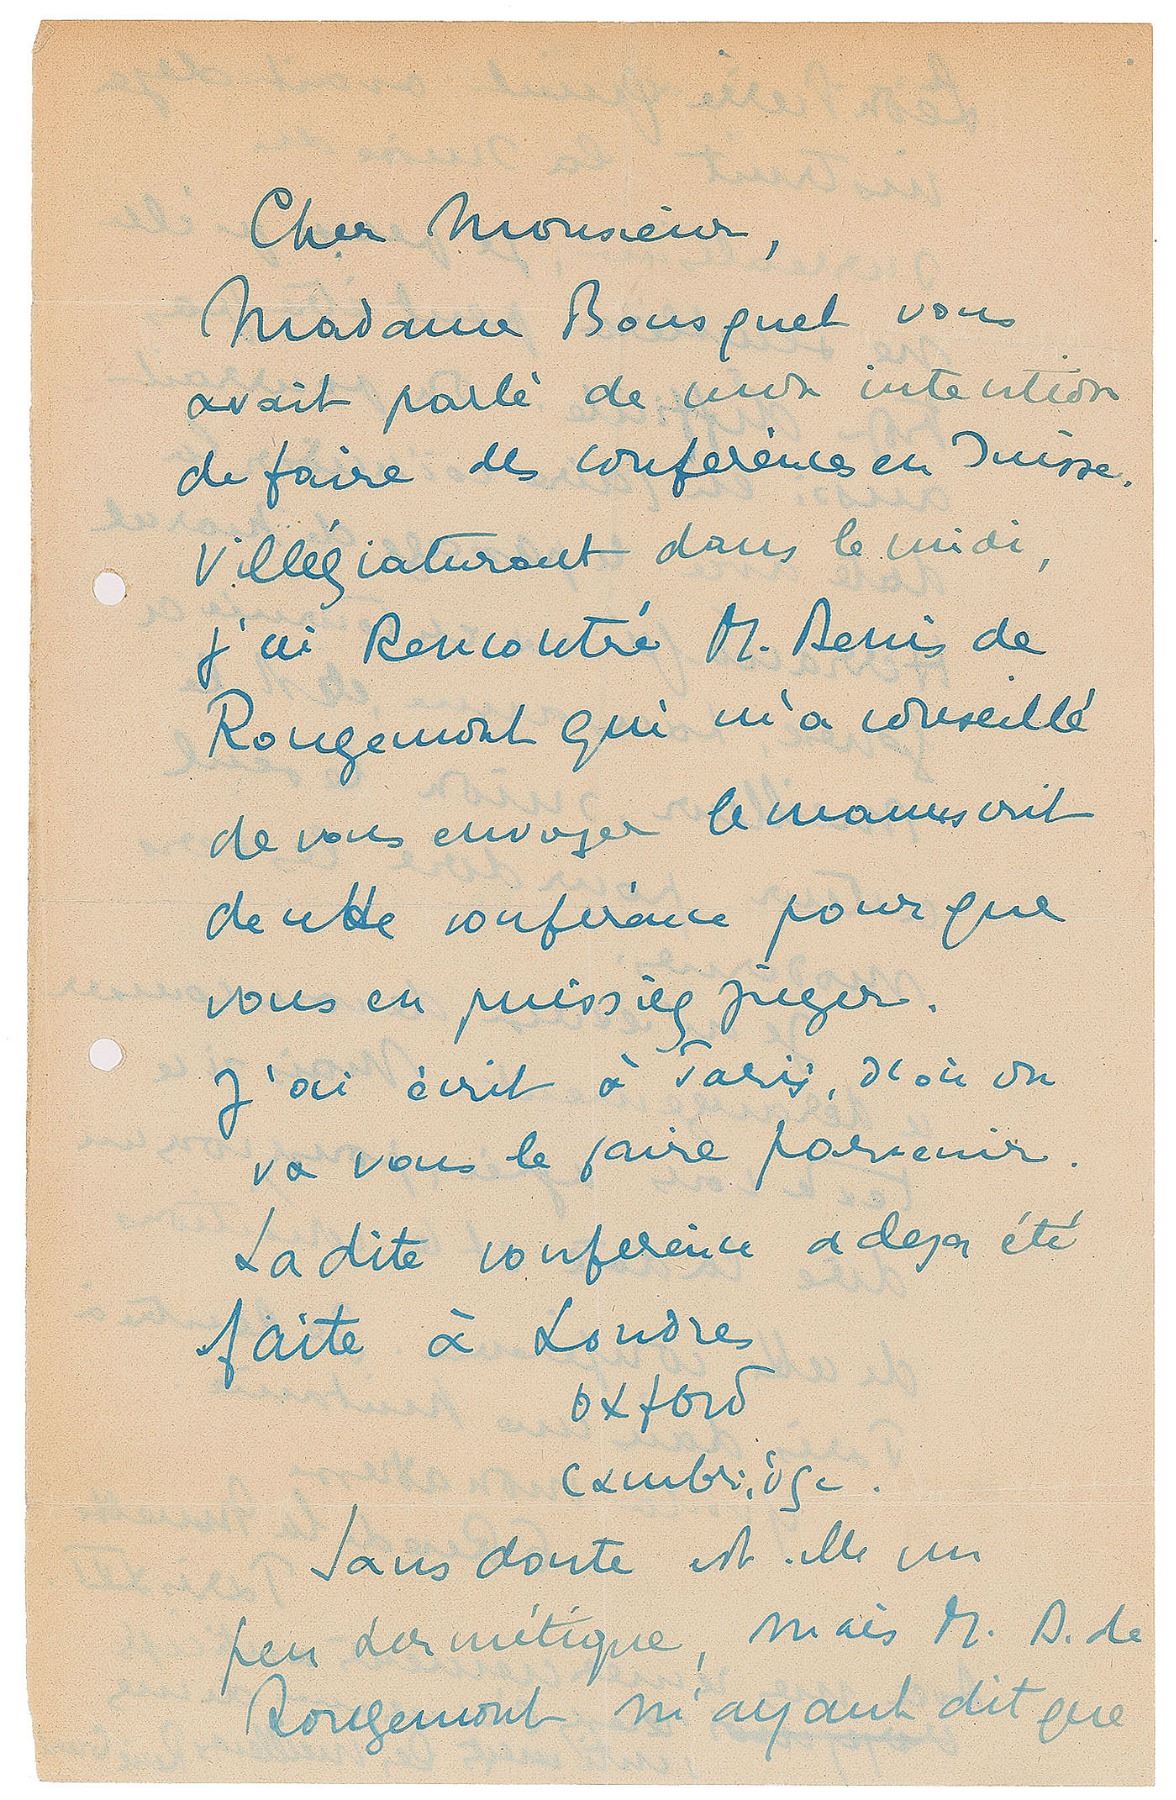 Cher Monsieur,
Madame Bousquet vous
avait parlé de mon intention
de faire des conférences en Suisse.
Villégiaturant dans le midi,
j'ai Rencontré M. Denis de
Rougemont qui m'a conseillé
de vous envoyer le manuscrit
de cette conférence pour que
vous en puissiez juger.
J'ai écrit à Paris, d'où on
va vous le faire parvenir.
La dite conférence a deja été
faite à Londres
Oxford
Cambridge.
Sans doute est-elle un
peu hermétique, mais M. D. de
Rougemont m'ayant dit que